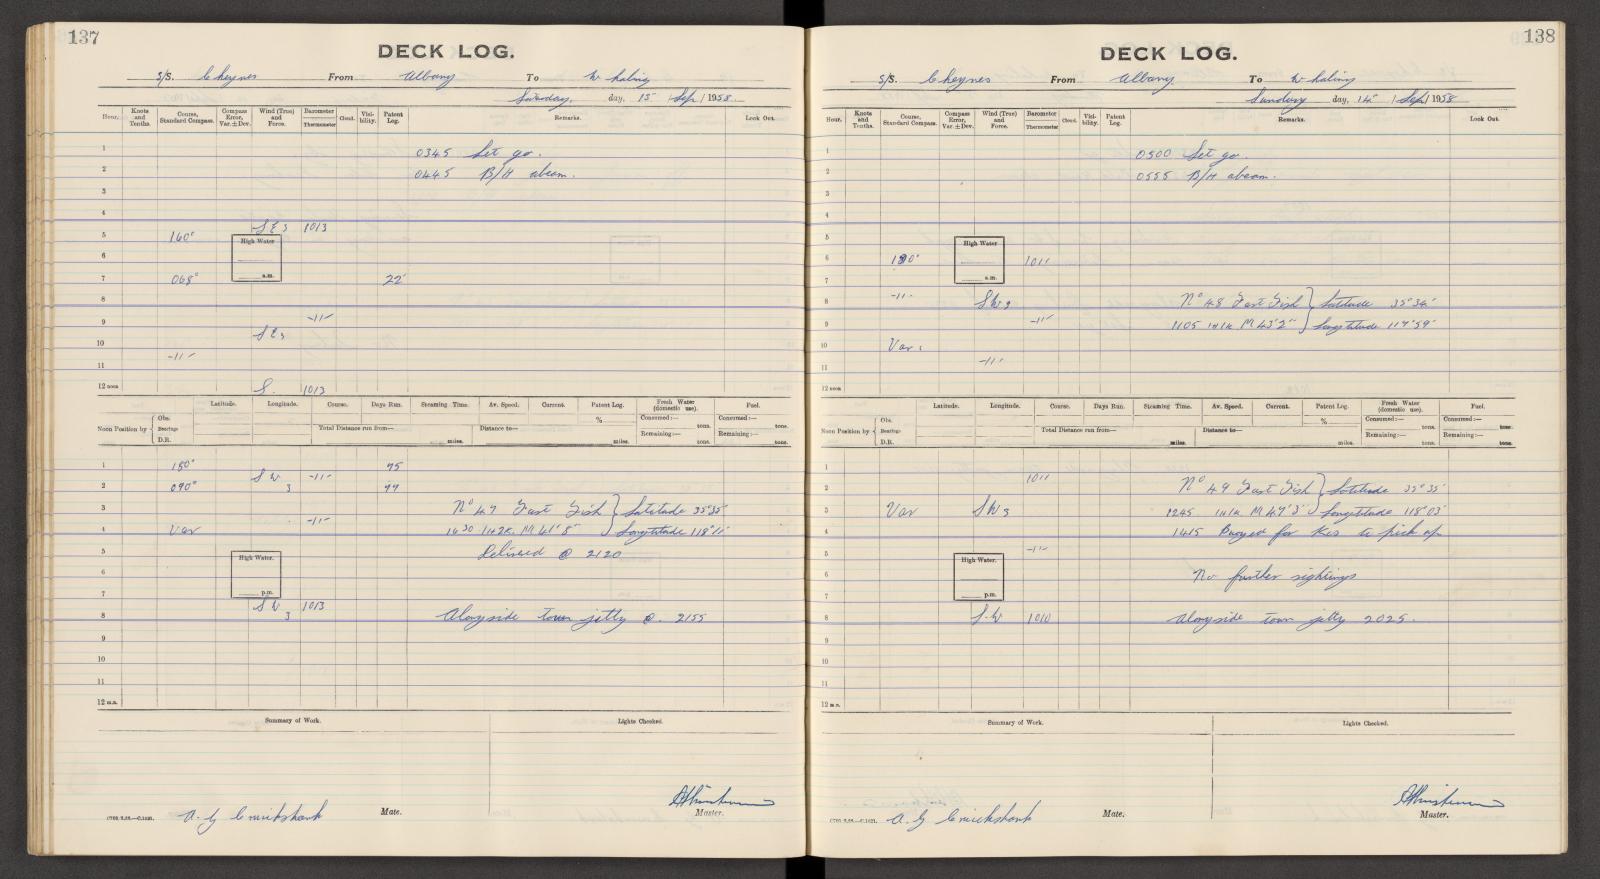 137
DECK LOG.
S/S. Cheynes From Albany To Whaling
Saturday, day, 13 / Sep / 1958.
Hour. Knots and Tenths. Course, Standard Compass. Compass Error, Var. ± Dev. Wind (True) and Force. Barometer Thermometer Cloud. Visibility. Patent Log. Remarks. Look Out.
1 0345 Let go.
2 0445 B/H abeam.
3
4 SE 3 1013
5 160°
High Water
6
a.m.
7 068° 22'
8
9 -11-
SE 3
10
-11-
11
12 noon S. 1013
Latitude. Longitude. Course. Days Run. Steaming Time. Av. Speed. Current. Patent Log. Fresh Water (domestic use). Fuel.
Noon Position by Obs. Bearings D.R. Total Distance run from— miles. Distance to— miles. % Consumed:— tons. Remaining:— tons. Consumed:— tons. Remaining:— tons.
1 180° 75
SW 3 -11-
2 090° 77
3 No 47 Fast Fish } Latitude 35°35'
-11-
4 Var 1430 M 41'8" } Longtitude 118°11'
5 Delivered @ 2120
High Water.
6
7 p.m.
SW 3 1013
8 Alongside town jetty @. 2155
9
10
11
12 m.n.
Summary of Work. Lights Checked.
A. G Cruickshank Mate. Master.
138
DECK LOG.
S/S. Cheynes From Albany. To Whaling
Sunday day, 14 / Sep / 1958
Hour. Knots and Tenths. Course, Standard Compass. Compass Error, Var. ± Dev. Wind (True) and Force. Barometer Thermometer Cloud. Visibility. Patent Log. Remarks. Look Out.
1 0500 Let go.
2 0555 B/H abeam.
3
4
5
High Water
6 1011
7 a.m.
8 -11- SW 3 No 48 Fast Fish } Latitude 35°34'
9 -11- 1105 M 43'2" } Longtitude 117°59'
10 Var:
11 -11-
12 noon
Latitude. Longitude. Course. Days Run. Steaming Time. Av. Speed. Current. Patent Log. Fresh Water (domestic use). Fuel.
Noon Position by Obs. Bearings D.R. Total Distance run from— miles. Distance to— miles. % Consumed:— tons. Remaining:— tons. Consumed:— tons. Remaining:— tons.
1
1011
2 No 49 Fast Fish } Latitude 35°35'
3 Var SW 3 1245 M 47'3" } Longtitude 118°03'
4 1415 Buoyed for Kos to pick up
5 -11-
High Water.
6 No further sightings
7 p.m.
8 S.W 1010 Alongside town jetty 2025.
9
10
11
12 m.n.
Summary of Work. Lights Checked.
A. G Cruickshank Mate. Master.